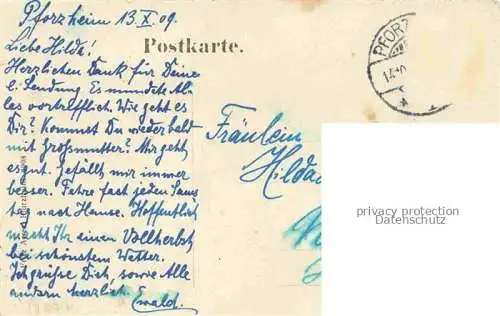 Pforzheim 13.X.09.
Liebe Hilda!
Postkarte.
Herzlichen Dank für Deine
l. Sendung Es mundete Al-
les vortrefflich. Wie geht es
Dir? Kommst Du wieder bald
mit Großmutter? Mir geht
es gut. Gefällt mir immer
besser. Fahre fast jeden Sams
tag nach Hause. Hoffentlich
macht Ihr einen Vollherbst
bei schönstem Wetter.
Ich grüsse Dich, sowie Alle
andern herzlich. Ewald.
PFORZ
Fräulein
Hilda
privacy protection
Datenschutz